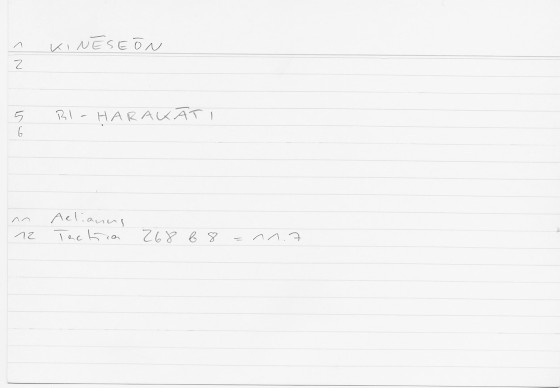 1 KINĒSEŌN
2
5 BI-ḤARAKĀTI
6
11 Aelianus
12 Tactica 268 B 8 = 11.7